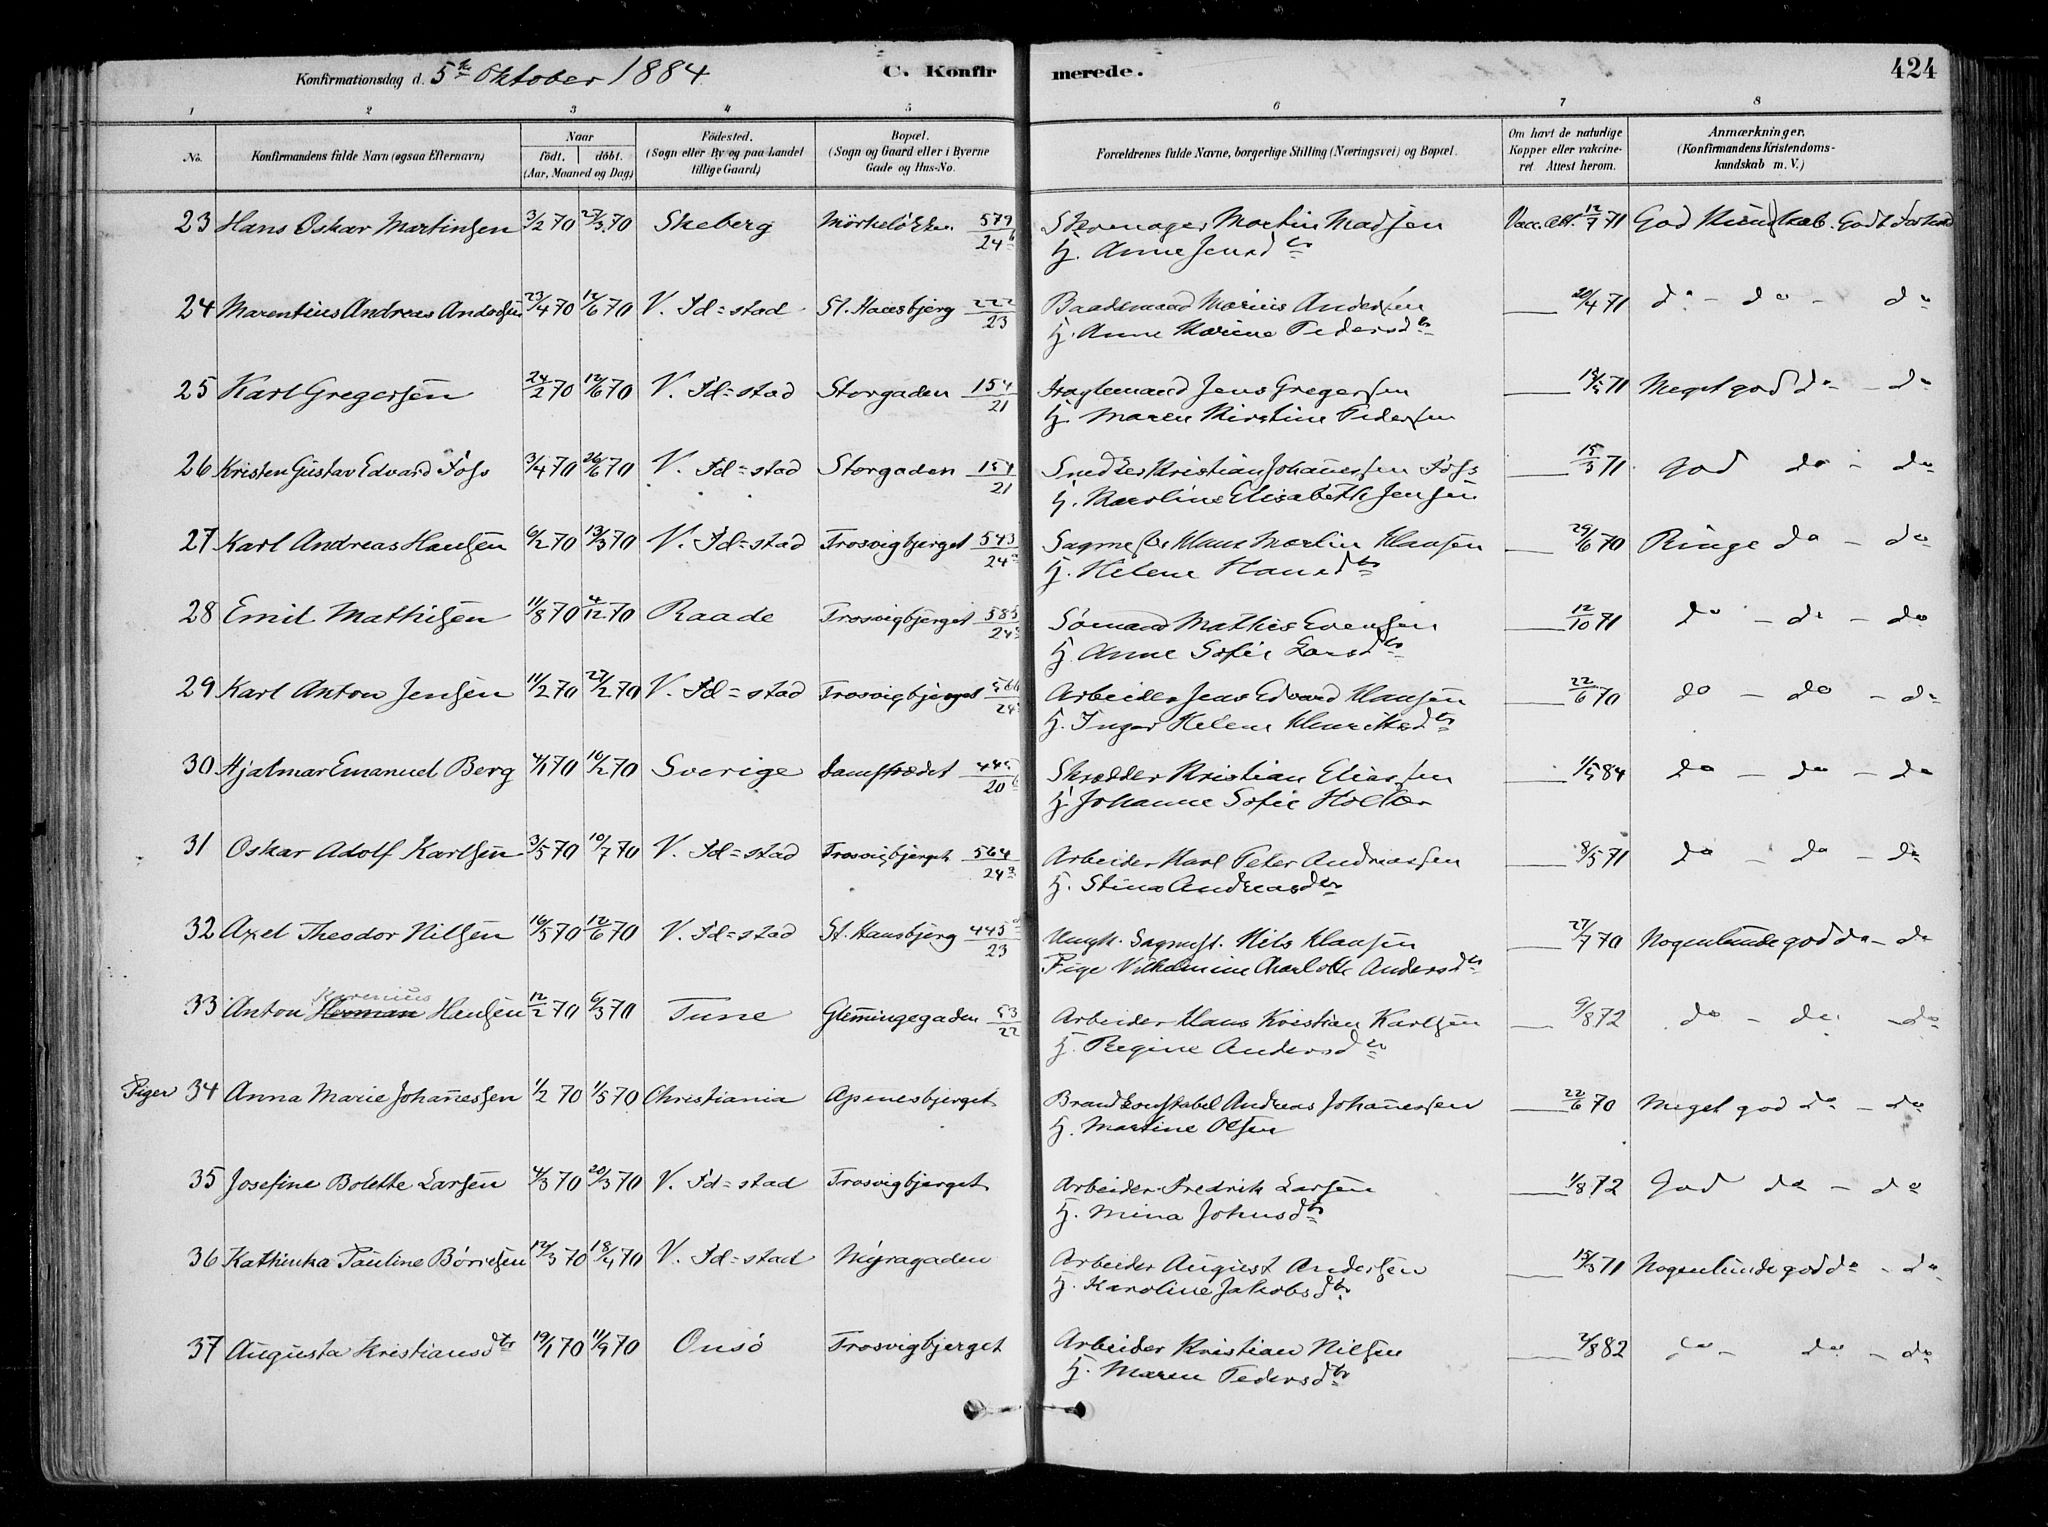 Konfirmationsdag d. 5te Oktober 1884 C. Konfirmerede. 424
1 2 3 4 5 6 7 8
No. Konfirmandens fulde Navn (ogsaa Efternavn) Naar födt. döbt. (Aar, Maaned og Dag) Födested. (Sogn eller By og paa Landet tillige Gaard) Bopæl. (Sogn og Gaard eller i Byerne Gade og Hus-No. Forældrenes fulde Navne, borgerlige Stilling (Næringsvei) og Bopæl. Om havt de naturlige Kopper eller vakcineret Attest herom. Anmærkninger. (Konfirmandens Kristendomskundskab m. V.)
23 Hans Oskar Martinsen 3/2 70 27/3 70 Skeberg 579/24b Skomager Martin Madsen Vacc. Att. 12/7 71 God Kundskab. Godt Forhold
H. Anne Jensdtr
24 Marentius Andreas Andersen 23/4 70 12/6 70 V. Fd=stad St. Hansbjerg 222/23 Baadsmand Marius Andersen 20/4 71 do - do - do
H. Anne Marine Pedersdtr
25 Karl Gregersen 24/2 70 12/6 70 V. Fd=stad Storgaden 154/21 Jens Gregersen 71 Meget god do - do
H. Maren Kirstine Pedersen
26 Kristen Gustav Edvard Foss 3/4 70 26/6 70 V. Fd=stad Storgaden 154/21 Snedker Kristian Johannessen Foss 15/3 71 God do - do
H. Karoline Elisabeth Jensen
27 Karl Andreas Hansen 6/2 70 13/3 70 V. Fd=stad Trosvigbjerget 543/24 Sagmester Klaus Martin Klausen 29/6 70 Ringe do - do
H. Helene Hansdtr
28 Emil Mathisen 11/8 70 4/12 70 Raade Trosvigbjerget 585/24 Sömand Mathis Evensen 12/10 71 do - do - do
H. Anne Sofie Larsdtr
29 Karl Anton Jensen 11/2 70 27/2 70 V. Fd=stad Trosvigbjerget Arbeider Jens Edvard Klausen 22/6 70 do - do - do
H. Inger Helene Henriksdtr
30 Hjalmar Emanuel Berg 4/1 70 10/2 70 Sverige Damstrædet Skrædder Kristian Eliassen 84 do - do - do
H. Johanne Sofie Holter
31 Oskar Adolf Karlsen 3/5 70 10/7 70 V. Fd=stad Trosvigbjerget 564/24a Arbeider Karl Peter Andreassen 8/5 71 do - do - do
H. Stina Andreasdtr
32 Axel Theodor Nilsen 16/5 70 12/6 70 V. Fd=stad St. Hansbjerg 445/23 Ungk. Sagmest. Nils Klausen 27/7 70 Nogenlunde god do - do
Pige Vilhelmine Charlotte Andersdtr
33 Anton Herman Hansen 12/2 70 6/3 70 Tune Glemmingegaden 53/22 Arbeider Hans Kristian Karlsen 9/8 72 do - do - do
H. Regine Andersdtr
Piger 34 Anna Marie Johannessen 1/2 70 1/5 70 Christiania Apenesbjerget Brandkonstabel Andreas Johannessen 22/6 70 Meget god do - do
H. Martine Olsen
35 Josefine Bolette Larsen 4/3 70 20/3 70 V. Fd=stad Trosvigbjerget Arbeider Fredrik Larsen 1/8 72 God do - do
H. Mina Johnsdtr
36 Kathinka Pauline Börresen 12/3 70 18/4 70 V. Fd=stad Myragaden Arbeider August Andersen 15/3 71 Nogenlunde god do - do
H. Karoline Jakobsdtr
37 Augusta Kristiansdtr 19/1 70 11/9 70 Onsö Trosvigbjerget Arbeider Kristian Nilsen 2/8 82 do - do - do
H. Maren Pedersdtr